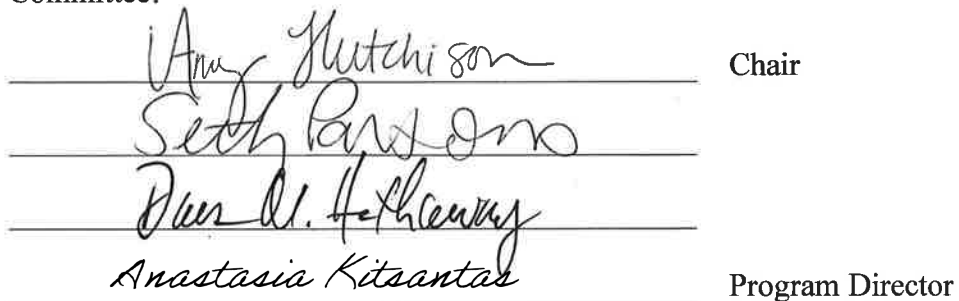 Committee:
Amy Hutchison Chair
Seth Parsons
Dawn M. Hathaway
Anastasia Kitsantas Program Director